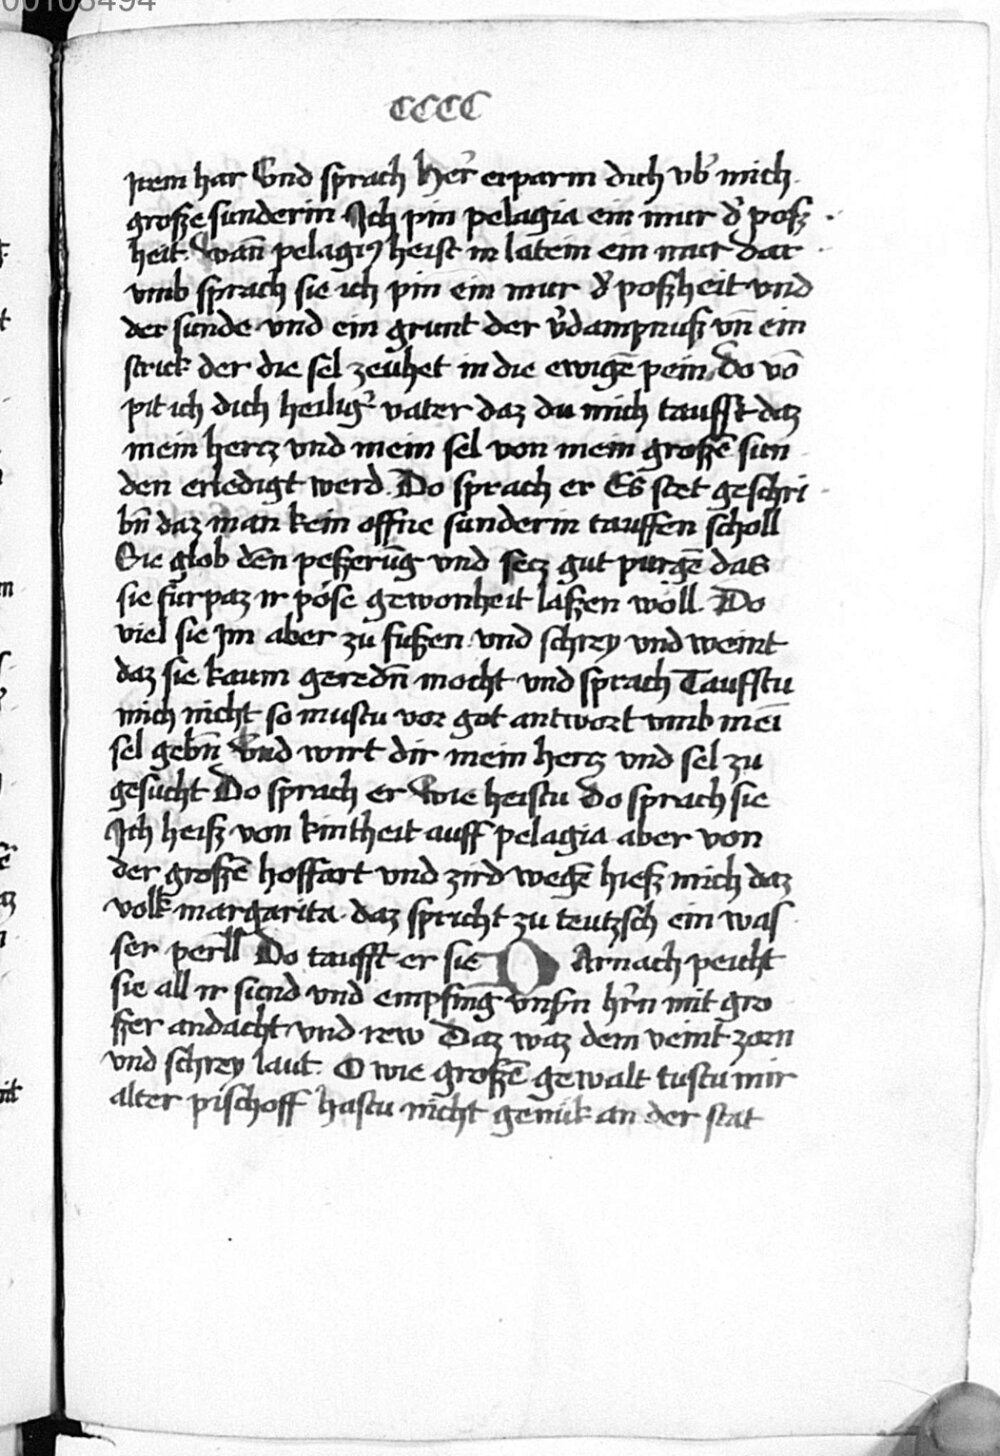 00103494
CCCC
irem har Vnd sprach Her̄ erparm dich vb͛ mich
große sunderin Ich pin pelagia ein mur d͛ posz
heit. Wan̄ pelagiꝯ heist in latein ein mur dar
vmb sprach sie ich pin ein mur d͛ poszheit vnd
der sunde vnd ein grunt der v͛dampnusz vn̄ ein
strick der die sel zeuhet in die ewigē pein Do vō
pit ich dich heilig͛ vater daz du mich taufft daz
mein hertz vnd mein sel von mein großē sun
den erledigt werd. Do sprach er Es stet geschri
bn̄ daz man kein offne sunderin tauffen scholl
Sie glob den̄ peßerūg vnd secz gut purgē das
sie fürpaz ir pöse gewonheit laßen wöll Do
viel sie Im aber zu fußen vnd schrey vnd weint
daz sie kaum geredn̄ mocht vnd sprach Taufftu
mich nicht so mustu vor got antwort vmb mei̅
sel gebn̄ Vnd wirt dir mein hertz vnd sel zu
gesucht Do sprach er Wie heistu Do sprach sie
Ich heisz von kintheit auff pelagia aber von
der großē hoffart vnd zird wegē hiesz mich daz
volk margarita. daz spricht zu teutzsch ein was
ser perll Do taufft er sie DArnach peicht
sie all ir sünd vnd empfing vnſn̄ hr̄n mit gro
ßer andacht vnd rew Daz waz dem veint zorn
vnd schrey laut. O wie großē gewalt tustu mir
alter pischoff hastu nicht genük an der stat